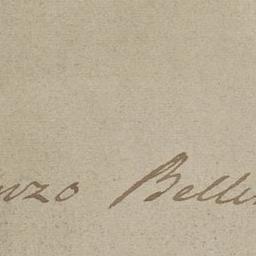 nzo Belli